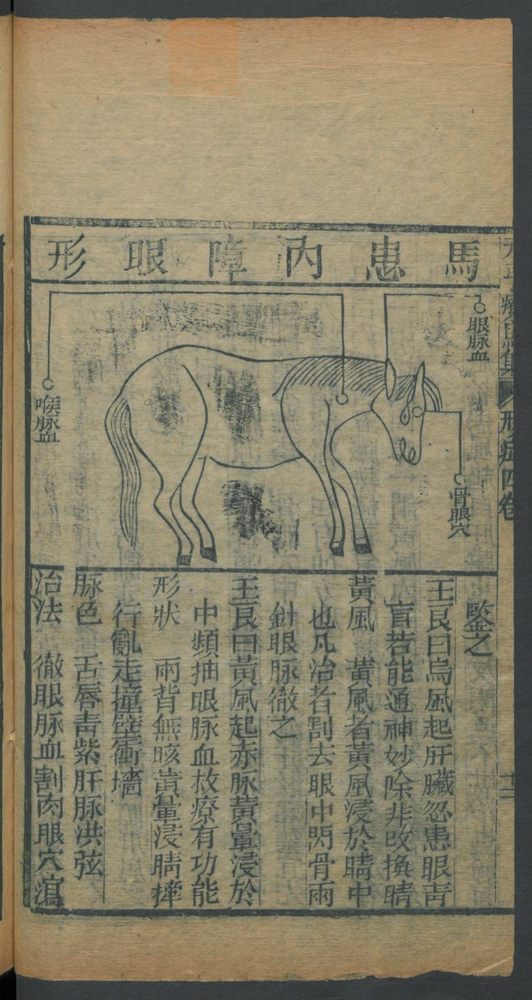 馬患內障眼形
眼脉血
骨眼穴
喉脉血
鑒之
王良曰烏風起肝臟忽患眼靑
盲若能通神妙除非改換睛
黃風　黃風者黃風浸於睛中
也凡治者割去眼中閃骨兩
針眼脉徹之
王良曰黃風起赤脉黃暈浸於
中頻抽眼脉血救療有功能
形狀　兩背無眵黃暈浸睛
行亂走撞壁衝墻
脉色　舌唇靑紫肝脉洪弦
治法　徹眼脉血割肉眼穴
形症四卷